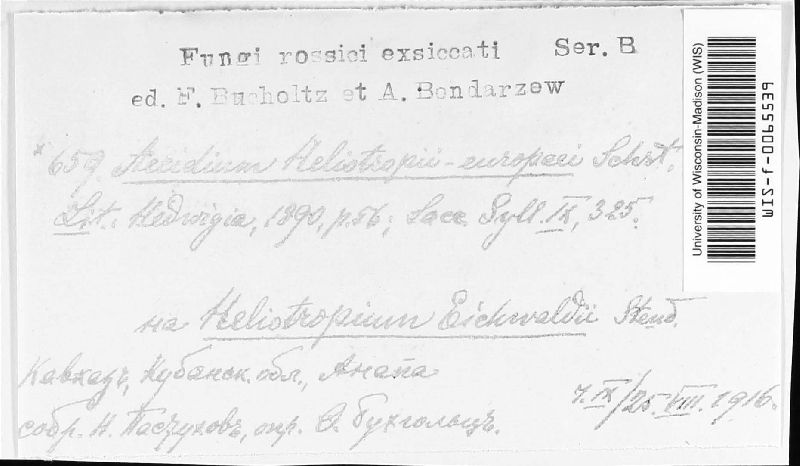 Fungi rossici exsiccati Ser. B
ed. F. Bucholtz et A. Bondarzew
* 659. Aecidium Heliotropii-europaei Schrt.
Lit.: Hedwigia, 1890, p. 56; Sacc. Syll. IX, 325.
на Heliotropium Eichwaldii Steud.
Кавказъ, Кубанск. обл., Анапа
7. IX/25. VIII. 1916.
собр. Н. опр. Ѳ. Бухгольцъ.
University of Wisconsin-Madison (WIS)
WIS-f-0065539